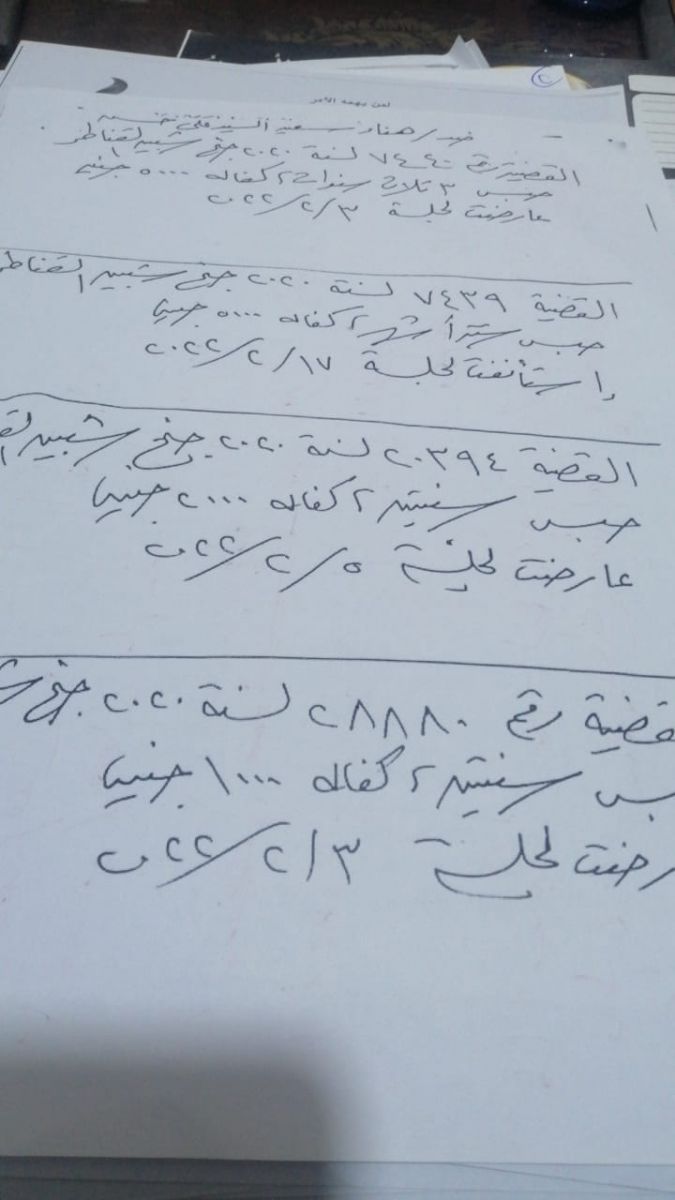 لمن يهمه الأمر
ضد / هناء
القضية رقم ٧٤٤٠ لسنة ٢٠٢٠ جنح شبين القناطر
حبس ٣ ثلاث سنوات و كفاله ٥٠٠٠ جنيه
عارضت لجلسة ٣/٢/٢٠٢٢
القضية ٧٤٣٩ لسنة ٢٠٢٠ جنح شبين القناطر
حبس ستة أشهر و كفاله ٥٠٠٠ جنيها
واستأنفت لجلسة ١٧/٢/٢٠٢٢
القضية ٢٠٣٩٤ لسنة ٢٠٢٠ جنح شبين
حبس سنتين و كفاله ٢٠٠٠ جنيها
عارضت لجلسة ٥/٢/٢٠٢٢
قضية رقم ٢٨٨٨٠ لسنة ٢٠٢٠ جنح
بس سنتين و كفاله ١٠٠٠ جنيها
رضت لجلسة ٣/٢/٢٠٢٢